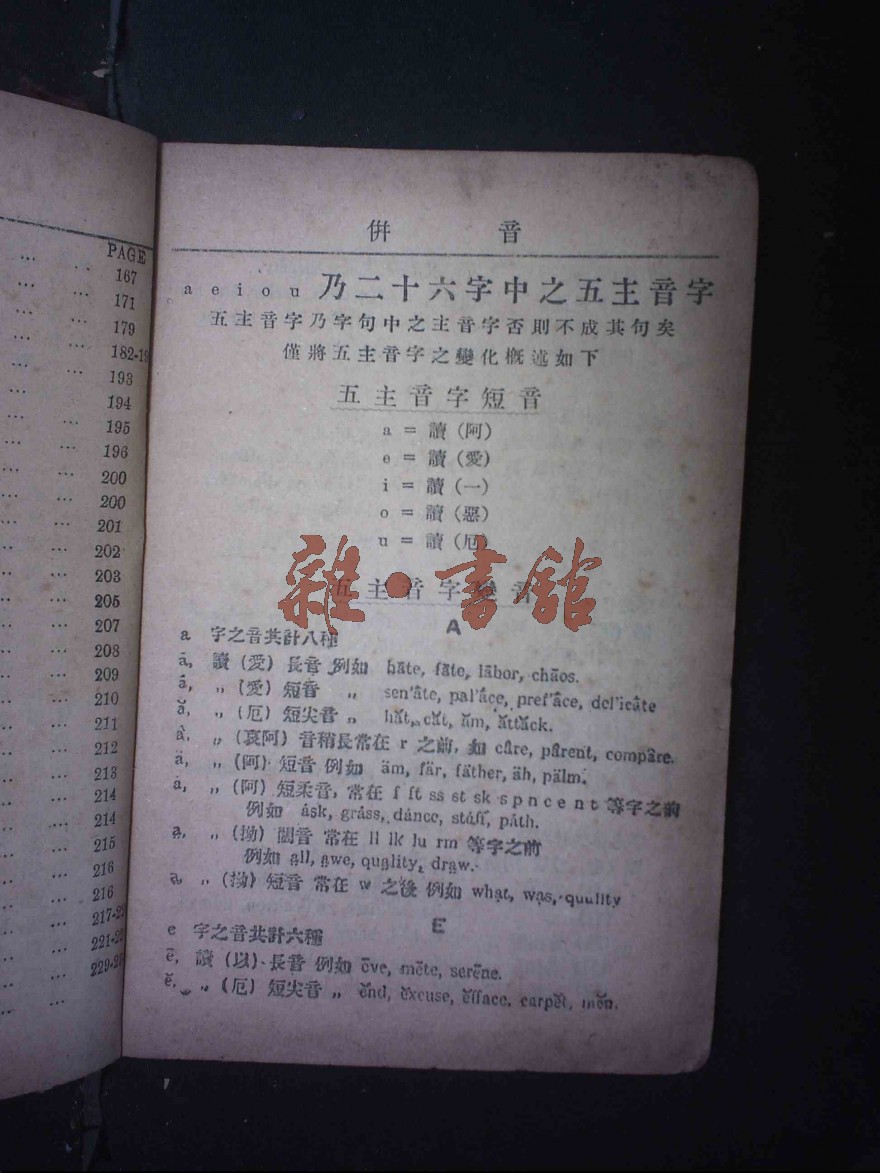 PAGE
167
171
179
182-19
193
194
195
196
200
200
201
202
203
205
207
208
209
210
211
212
213
214
214
215
216
216
217-22
221-22
229-23
併 音
a e i o u 乃二十六字中之五主音字
五主音字乃字句中之主音字否則不成其句矣
僅將五主音字之變化概述如下
五主音字短音
a = 讀 (阿)
e = 讀 (愛)
i = 讀 (一)
o = 讀 (惡)
u = 讀 (厄)
雜·書館
五主音字變音
A
a 字之音共計八種
ā, 讀 (愛) 長音 例如 hāte, fāte, lābor, chāos.
„ (愛) 短音 „ sen'âte, pal'âçe, pref'âce, del'icâte
ă, „ (厄) 短尖音 „ hăt, căt, ăm, ăttăck.
â, „ (哀阿) 音稍長常在 r 之前, 如 câre, pârent, compâre.
ä, „ (阿) 短音 例如 äm, fär, fäther, äh, pälm.
ȧ, „ (阿) 短柔音, 常在 f ft ss st sk s p n c e n t 等字之前
例如 ȧsk, grȧss, dȧnce, stȧff, pȧth.
a̤, „ (拗) 闊音 常在 ll lk lu rm 等字之前
例如 a̤ll, a̤we, qua̤lity, dra̤w.
ạ, „ (拗) 短音 常在 w 之後 例如 whạt, wạs, quality
E
e 字之音共計六種
ē, 讀 (以) 長音 例如 ēve, mēte, serēne.
ĕ, „ (厄) 短尖音 „ ĕnd, ĕxcuse, ĕfface, carpĕt, mĕn.